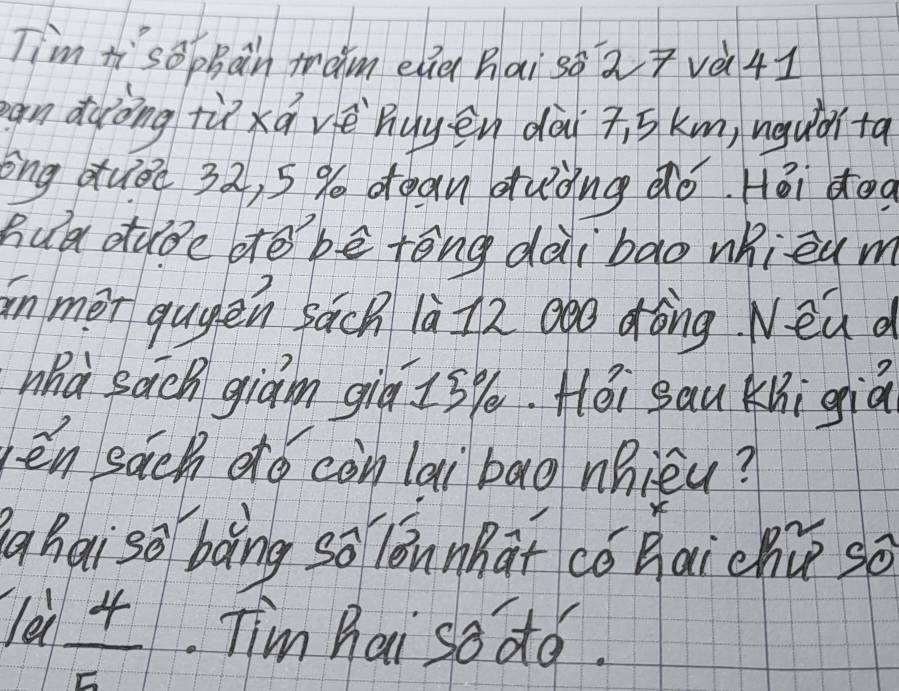 Tìm tỉ số phần trăm của hai số 27 và 41
đường từ xã về huyện dài 7,5 km, người ta
được 32,5 % đoạn đường đó. Hỏi
được đổ bê tông dài bao nhiêu m
một quyển sách là 12 000 đồng. Nếu
nhà sách giảm giá 15%. Hỏi sau khi
sách đó còn lại bao nhiêu?
hai số bằng số lớn nhất có hai chữ số
là 4
5 . Tìm hai số đó.